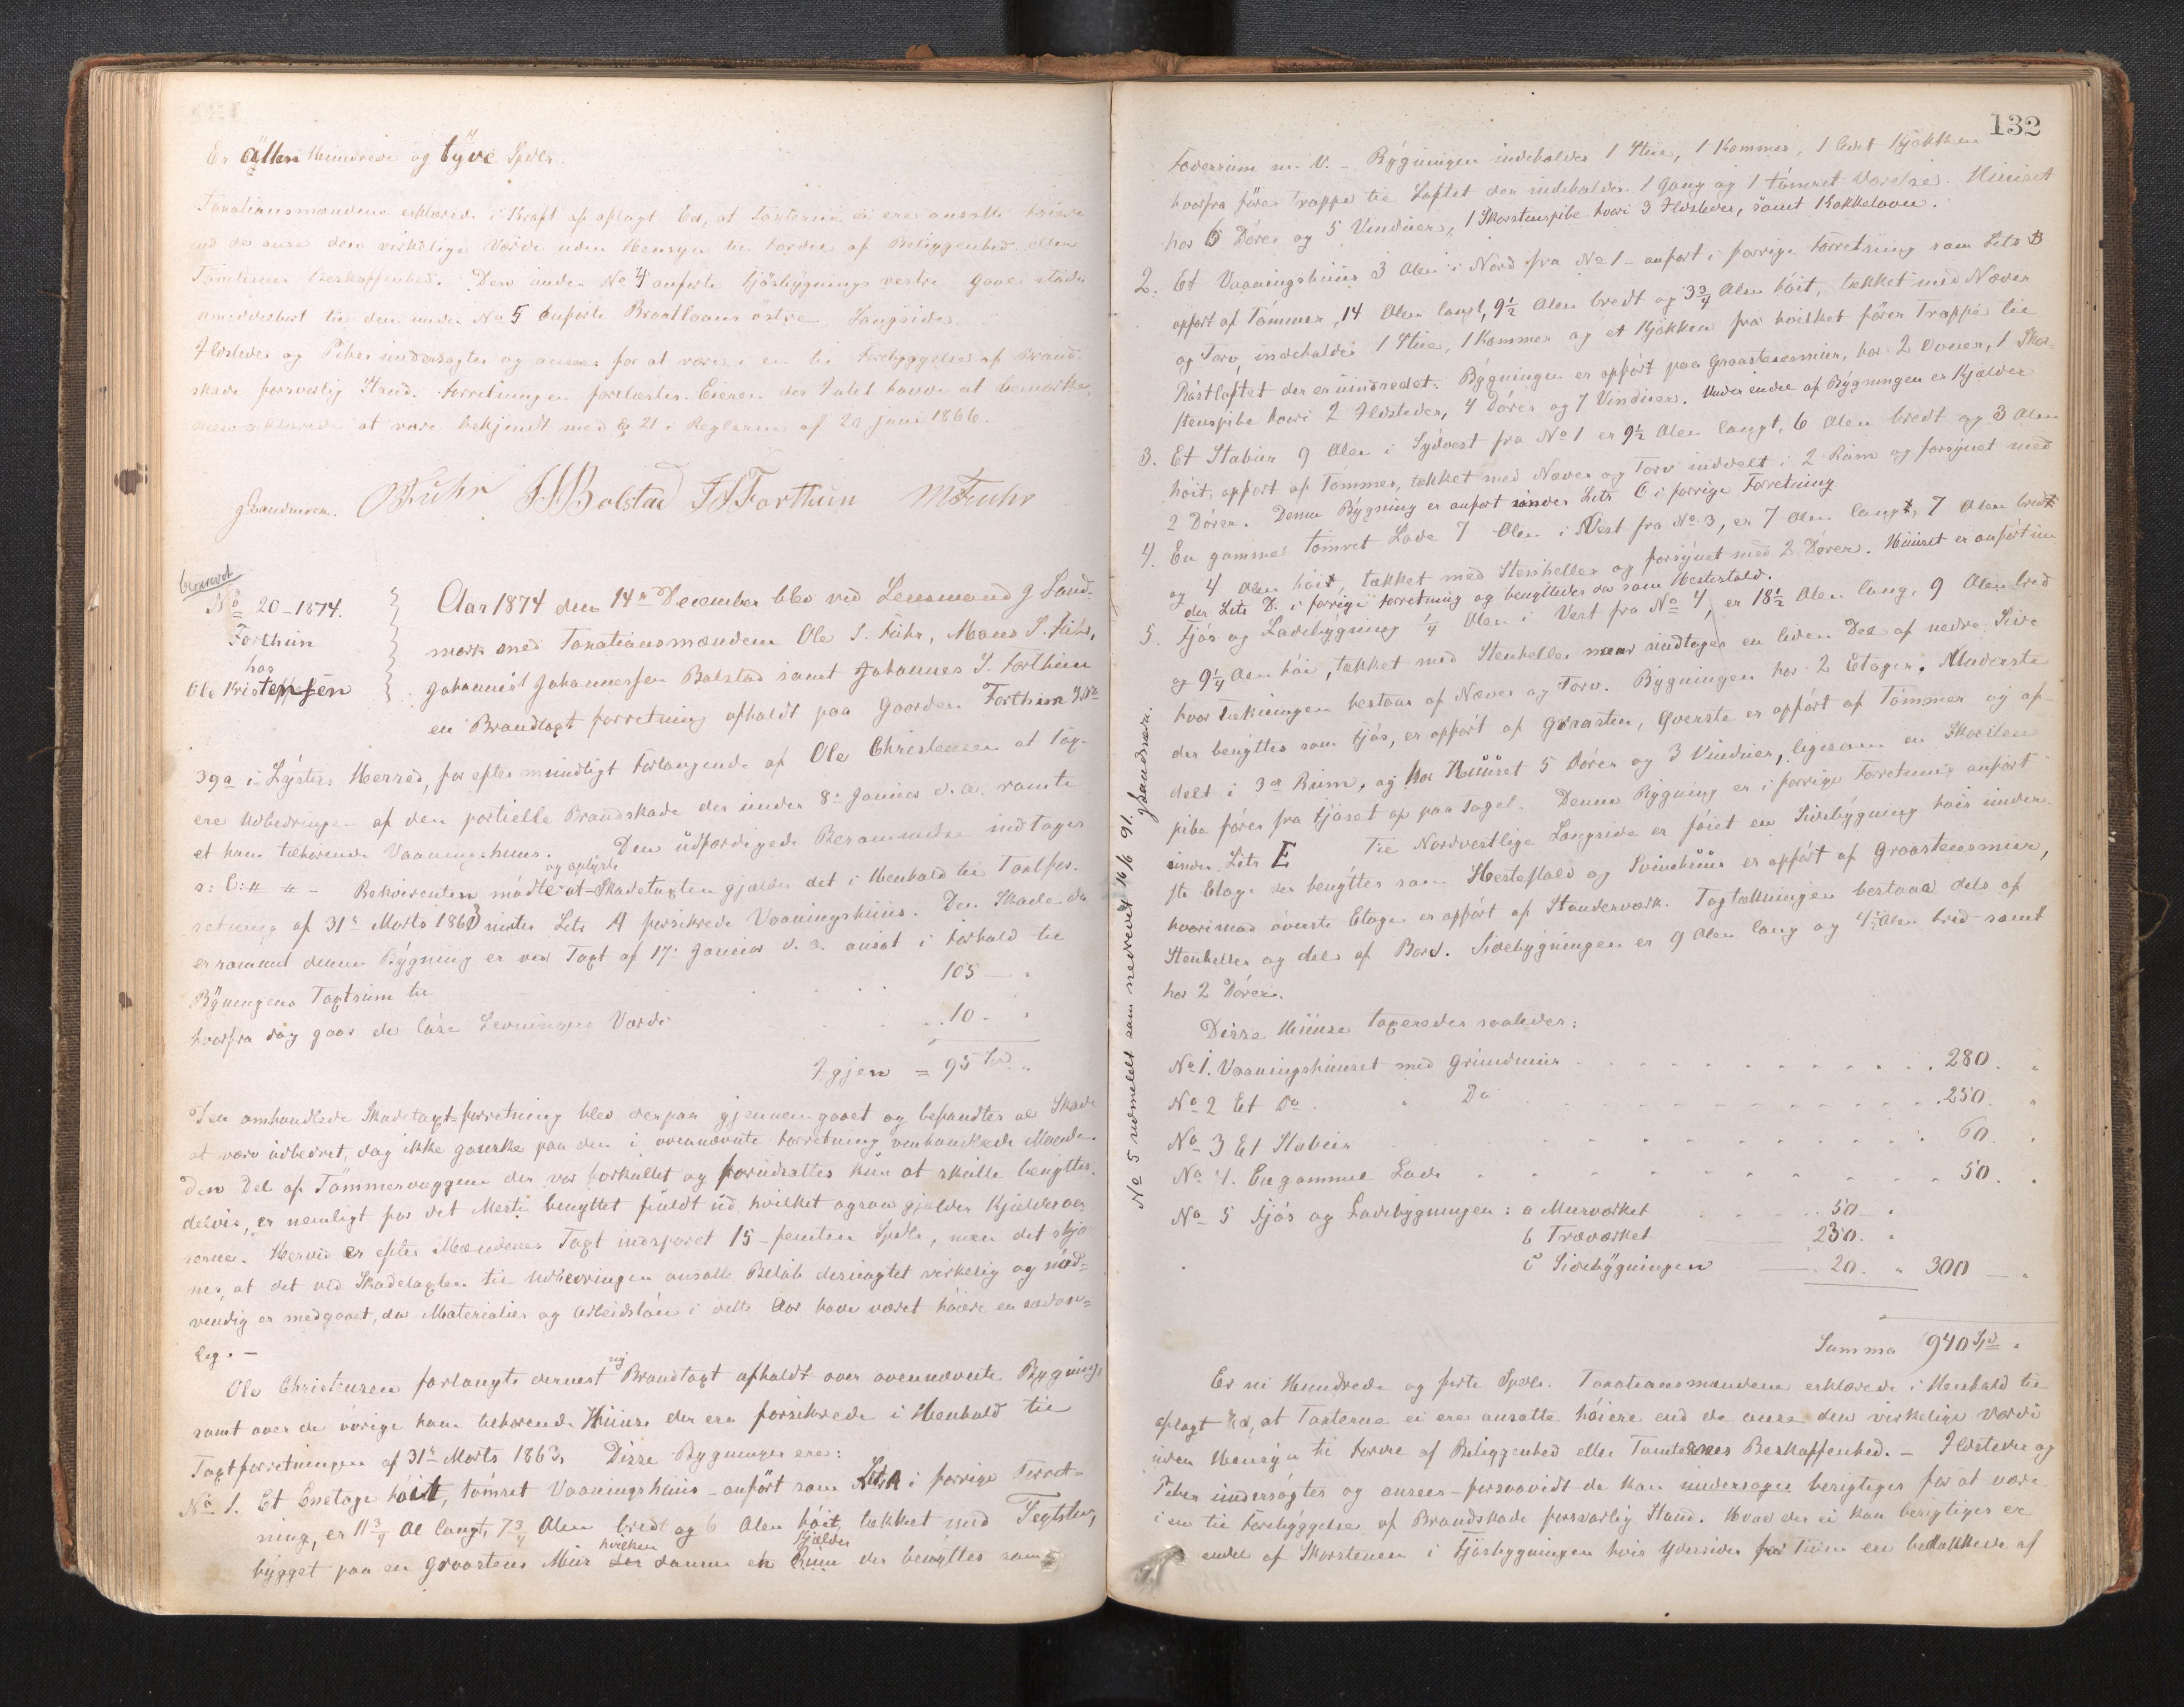 Er atten Hundrede og tyve Spdlr.
Taxationsmændene erklærede i Kraft af aflagt Ed, at Taxterne ei ere ansatte høiere
end de anse den virkelige Værdi uden Hensyn til Fordel af Beliggenhed eller
Tomternes Beskaffenhed. Den under No 4 anførte Fjøsbygnings vestre Gavl støder
umiddelbart til den under No 5 anførte Braatloans østre Langside.
Ildsteder og Piber undersøgtes og ansees for at være i en til Forebyggelse af Brand-
skade forsvarlig Stand. Forretningen forelæstes. Eieren der Intet havde at bemærke,
men erklærede at være bekjendt med § 21 i Reglerne af 20 Juni 1866.
J Sandmark. O Fuhr JJBolstad JSForthun MFuhr
beramet
No 20-1874.
Forthun
hos
Ole Kristensen
Aar 1874 den 14de December blev ved Lensmand J Sand-
mark med Taxationsmændene Ole S. Fuhr, Mons S. Fuhr,
Johannes Johannessen Bolstad samt Johannes S. Forthun
en Brandtaxt forretning afholdt paa Gaarden Forthun No
39a i Lysters Herred, for efter mundtligt Forlangende af Ole Christensen at tax-
ere Udbedringen af den partielle Brandskade der under 8de Januar d. A. ramte
et ham tilhørende Vaaningshuus. Den udfærdigede Berammelse indtages
s: l: # # - Rekvirenten mødte og oplyste at Skadetaxten gjælder det i Henhold til Taxtfor-
retning af 31te Marts 1863 under Litr A forsikrede Vaaningshuus. Den Skade der
er rammet denne Bygning er ved Taxt af 17. Januar d. A. ansat i Forhold til
Bygningens Taxtsum til . . . 105 — "
hvorfra dog gaar de løse Levningers Værdi . . . 10 - "
Igjen = 95 Spd "
Den omhandlede Skadetaxt-forretning blev derpaa gjennemgaaet og befandtes al Skade
at være udbedret, dog ikke ganske paa den i ovennævnte Forretning omhandlede Maade.
Den Del af Tømmervæggene der var forkullet og forudsattes kun at skulle benyttes
delvis, er nemligt for det Meste benyttet fuldt ud, hvilket ogsaa gjælder Kjælderaa-
serne. Herved er efter Mændenes Taxt indsparet 15 - femten Spdlr, men det skjø-
nnes, at det ved Skadetaxten til Udbedringen ansatte Beløb desuagtet virkelig og nød-
vendig er medgaaet, da Materialier og Arbeidsløn i dette Aar have været høiere en sædvan-
lig. -
Ole Christensen forlangte dernest ny Brandtaxt afholdt over ovennævnte Bygning,
samt over de øvrige ham tilhørende Huuse der ere forsikrede i Henhold til
Taxtforretningen af 31te Marts 1863. Disse Bygninger ere:
No 1. Et Enetage høit, tømret Vaaningshuus - anført som Litr A i forrige Forret-
ning, er 11 3/4 Al langt, 7 3/4 Alen bredt og 6 Alen høit, tækket med Teglsten,
bygget paa en Graastens Muur hvilken danner et Kjælder Rum der benyttes som
132
Foderrum m. V. - Bygningen indeholder 1 Stue, 1 Kammer, 1 lidet Kjøkken
hvorfra fører Trappe til Loftet der indeholder 1 Gang og 1 tømret Værelse. Huuset
har 6 Døre og 5 Vinduer, 1 Skorstenspibe hvori 3 Ildsteder, samt Kakkelovn.
2. Et Vaaningshuus 3 Alen i Nord fra No 1 - anført i forrige Forretning som Litr B
opført af Tømmer, 14 Alen langt, 9 1/2 Alen bredt og 3 3/4 Alen høit, tækket med Næver
og Torv, indeholder 1 Stue, 1 Kammer og et Kjøkken fra hvilket fører Trappe til
Røstloftet der er uindredet. Bygningen er opført paa Graasteensmuur, har 2 Ovner, 1 Skor-
stenspibe hvori 2 Ildsteder, 4 Døre og 7 Vinduer. Under endel af Bygningen er Kjælder
3. Et Stabur 9 Alen i Sydvest fra No 1 er 9 1/2 Alen langt, 6 Alen bredt og 3 Alen
høit, opført af Tømmer, tækket med Næver og Torv inddelt i 2 Rum og forsynet med
2 Døre. Denne Bygning er anført under Litr C i forrige Forretning
4. En gammel tømret Lade 7 Alen i Vest fra No 3, er 7 Alen langt, 7 Alen bredt
og 4 Alen høit, tækket med Stenheller og forsynet med 2 Døre. Huuset er anført un
der Litr D. i forrige Forretning og benyttedes da som Hestestald.
5. Fjøs og Ladebygning 1/4 Alen i Vest fra No 4, er 18 1/2 Alen lang, 9 Alen bred
og 9 1/4 Alen høi, tækket med Stenheller naar undtages en liden Del af nedre Side
hvor Tækningen bestaar af Næver og Torv. Bygningen har 2 Etager. Underste
der benyttes som Fjøs, er opført af Graasten, Øverste er opført af Tømmer og af-
delt i 3de Rum, og har Huuset 5 Døre og 3 Vinduer, ligesom en Skorsten
pibe fører fra Fjøset op paa Taget. Denne Bygning er i forrige Forretning anført
under Litr E Til Nordvestlige Langside er føiet en Sidebygning hvis under-
ste Etage der benyttes som Hestestald og Svinehuus er opført af Graasteensmuur,
hvorimod øverste Etage er opført af Standerværk. Tagtækningen bestaaa dels af
Stenheller og dels af Bord. Sidebygningen er 9 Alen lang og 4 1/2 Alen bred samt
har 2 Døre.
Disse Huuse taxeredes saaledes:
No 1. Vaaningshuuset med Grundmuur . . . 280. "
No 2 Et Do. " Do . . . 250. "
No 3 Et Stabur . . . 60. "
No 4. En gammel Lade . . . 50. "
No 5 Fjøs og Ladebygningen: a Murværket . . . 50 - "
b Træværket — 230. "
c Sidebygningen — 20. " 300 — "
Summa 940 Spd "
Er ni Hundrede og førti Spdlr. Taxationsmændene erklærede i Henhold til
aflagt Ed, at Taxterne ei ere ansatte høiere end de anse den virkelige Værdi
uden Hensyn til Fordel af Beliggenhed eller Tomternes Beskaffenhed. - Ildsteder og
Piber undersøgtes og ansees - forsaavidt de kan undersøges besigtiges for at være
i en til Forebyggelse af Brandskade forsvarlig Stand. Hvad der ei kan besigtiges er
endel af Skorstenen i Fjøsbygningen hvis Ydersider for Tiden ere bedækkede af
No 5 udmeldt som nedrevet 16/6 91. J Sandmark.